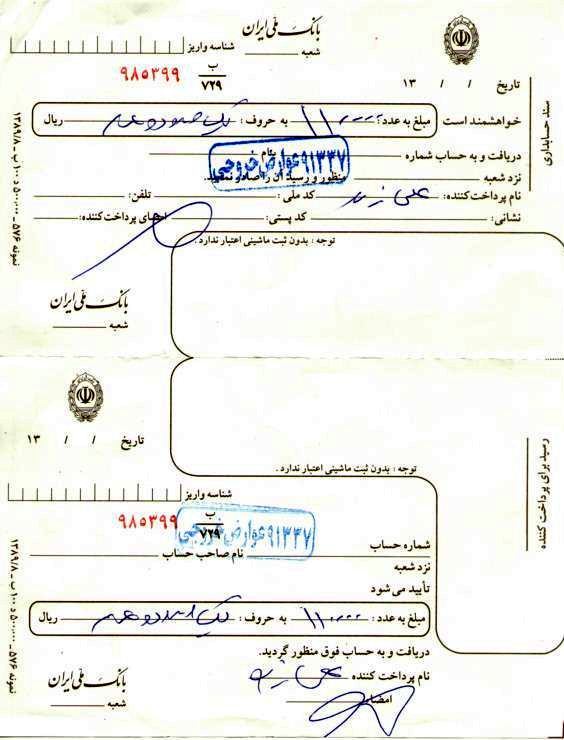 بانک ملی ایران
شعبه
شناسه واریز
ب
۷۲۹
۹۸۵۳۹۹
تاریخ / / ۱۳
سند حسابداری
خواهشمند است مبلغ به عدد: ۱۱۰۰۰۰ به حروف: ریال
دریافت و به حساب شماره بنام
۹۱۳۳۷ عوارض خروجی
نزد شعبه منظور و رسید آن را صادر نمائید.
نام پرداخت‌کننده: علی کد ملی: تلفن:
نشانی: کد پستی: امضای پرداخت‌کننده:
توجه: بدون ثبت ماشینی اعتبار ندارد.
بانک ملی ایران
شعبه
تاریخ / / ۱۳
رسید برای پرداخت کننده
توجه: بدون ثبت ماشینی اعتبار ندارد.
شناسه واریز
ب
۷۲۹
۹۸۵۳۹۹
۹۱۳۳۷ عوارض خروجی
شماره حساب نام صاحب حساب
نزد شعبه
تأیید می‌شود
مبلغ به عدد: ۱۱۰۰۰۰ به حروف: ریال
دریافت و به حساب فوق منظور گردید.
نام پرداخت کننده علی
امضاء
بانک ملی ایران
شعبه